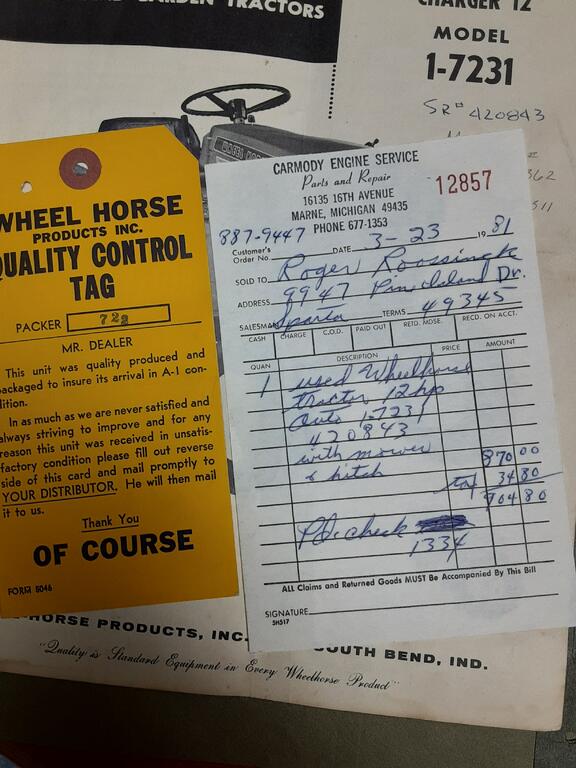 GARDEN TRACTORS
CHARGER 12
MODEL
1-7231
SR# 420843
WHEEL HORSE
PRODUCTS INC.
QUALITY CONTROL
TAG
PACKER 723
MR. DEALER
This unit was quality produced and
packaged to insure its arrival in A-1 con-
dition.
In as much as we are never satisfied and
always striving to improve and for any
reason this unit was received in unsatis-
factory condition please fill out reverse
side of this card and mail promptly to
YOUR DISTRIBUTOR. He will then mail
it to us.
Thank You
OF COURSE
FORM 5046
CARMODY ENGINE SERVICE
Parts and Repair
16135 16TH AVENUE
MARNE, MICHIGAN 49435
PHONE 677-1353
12857
887-9447
Customer's
Order No. DATE 3-23 1981
SOLD TO Roger Roossingk
ADDRESS 9947 Pine Island Dr.
SALESMAN Sparta TERMS 49345
CASH CHARGE C.O.D. PAID OUT RETD. MDSE. RECD. ON ACCT.
QUAN DESCRIPTION PRICE AMOUNT
1 used Wheelhorse
tractor 12hp
Auto 1-7231
420843
with mower
& hitch 870 00
tax 34 80
904 80
Pd. check
1334
ALL Claims and Returned Goods MUST Be Accompanied By This Bill
SIGNATURE
5H517
HORSE PRODUCTS, INC. SOUTH BEND, IND.
"Quality is Standard Equipment in Every Wheelhorse Product"